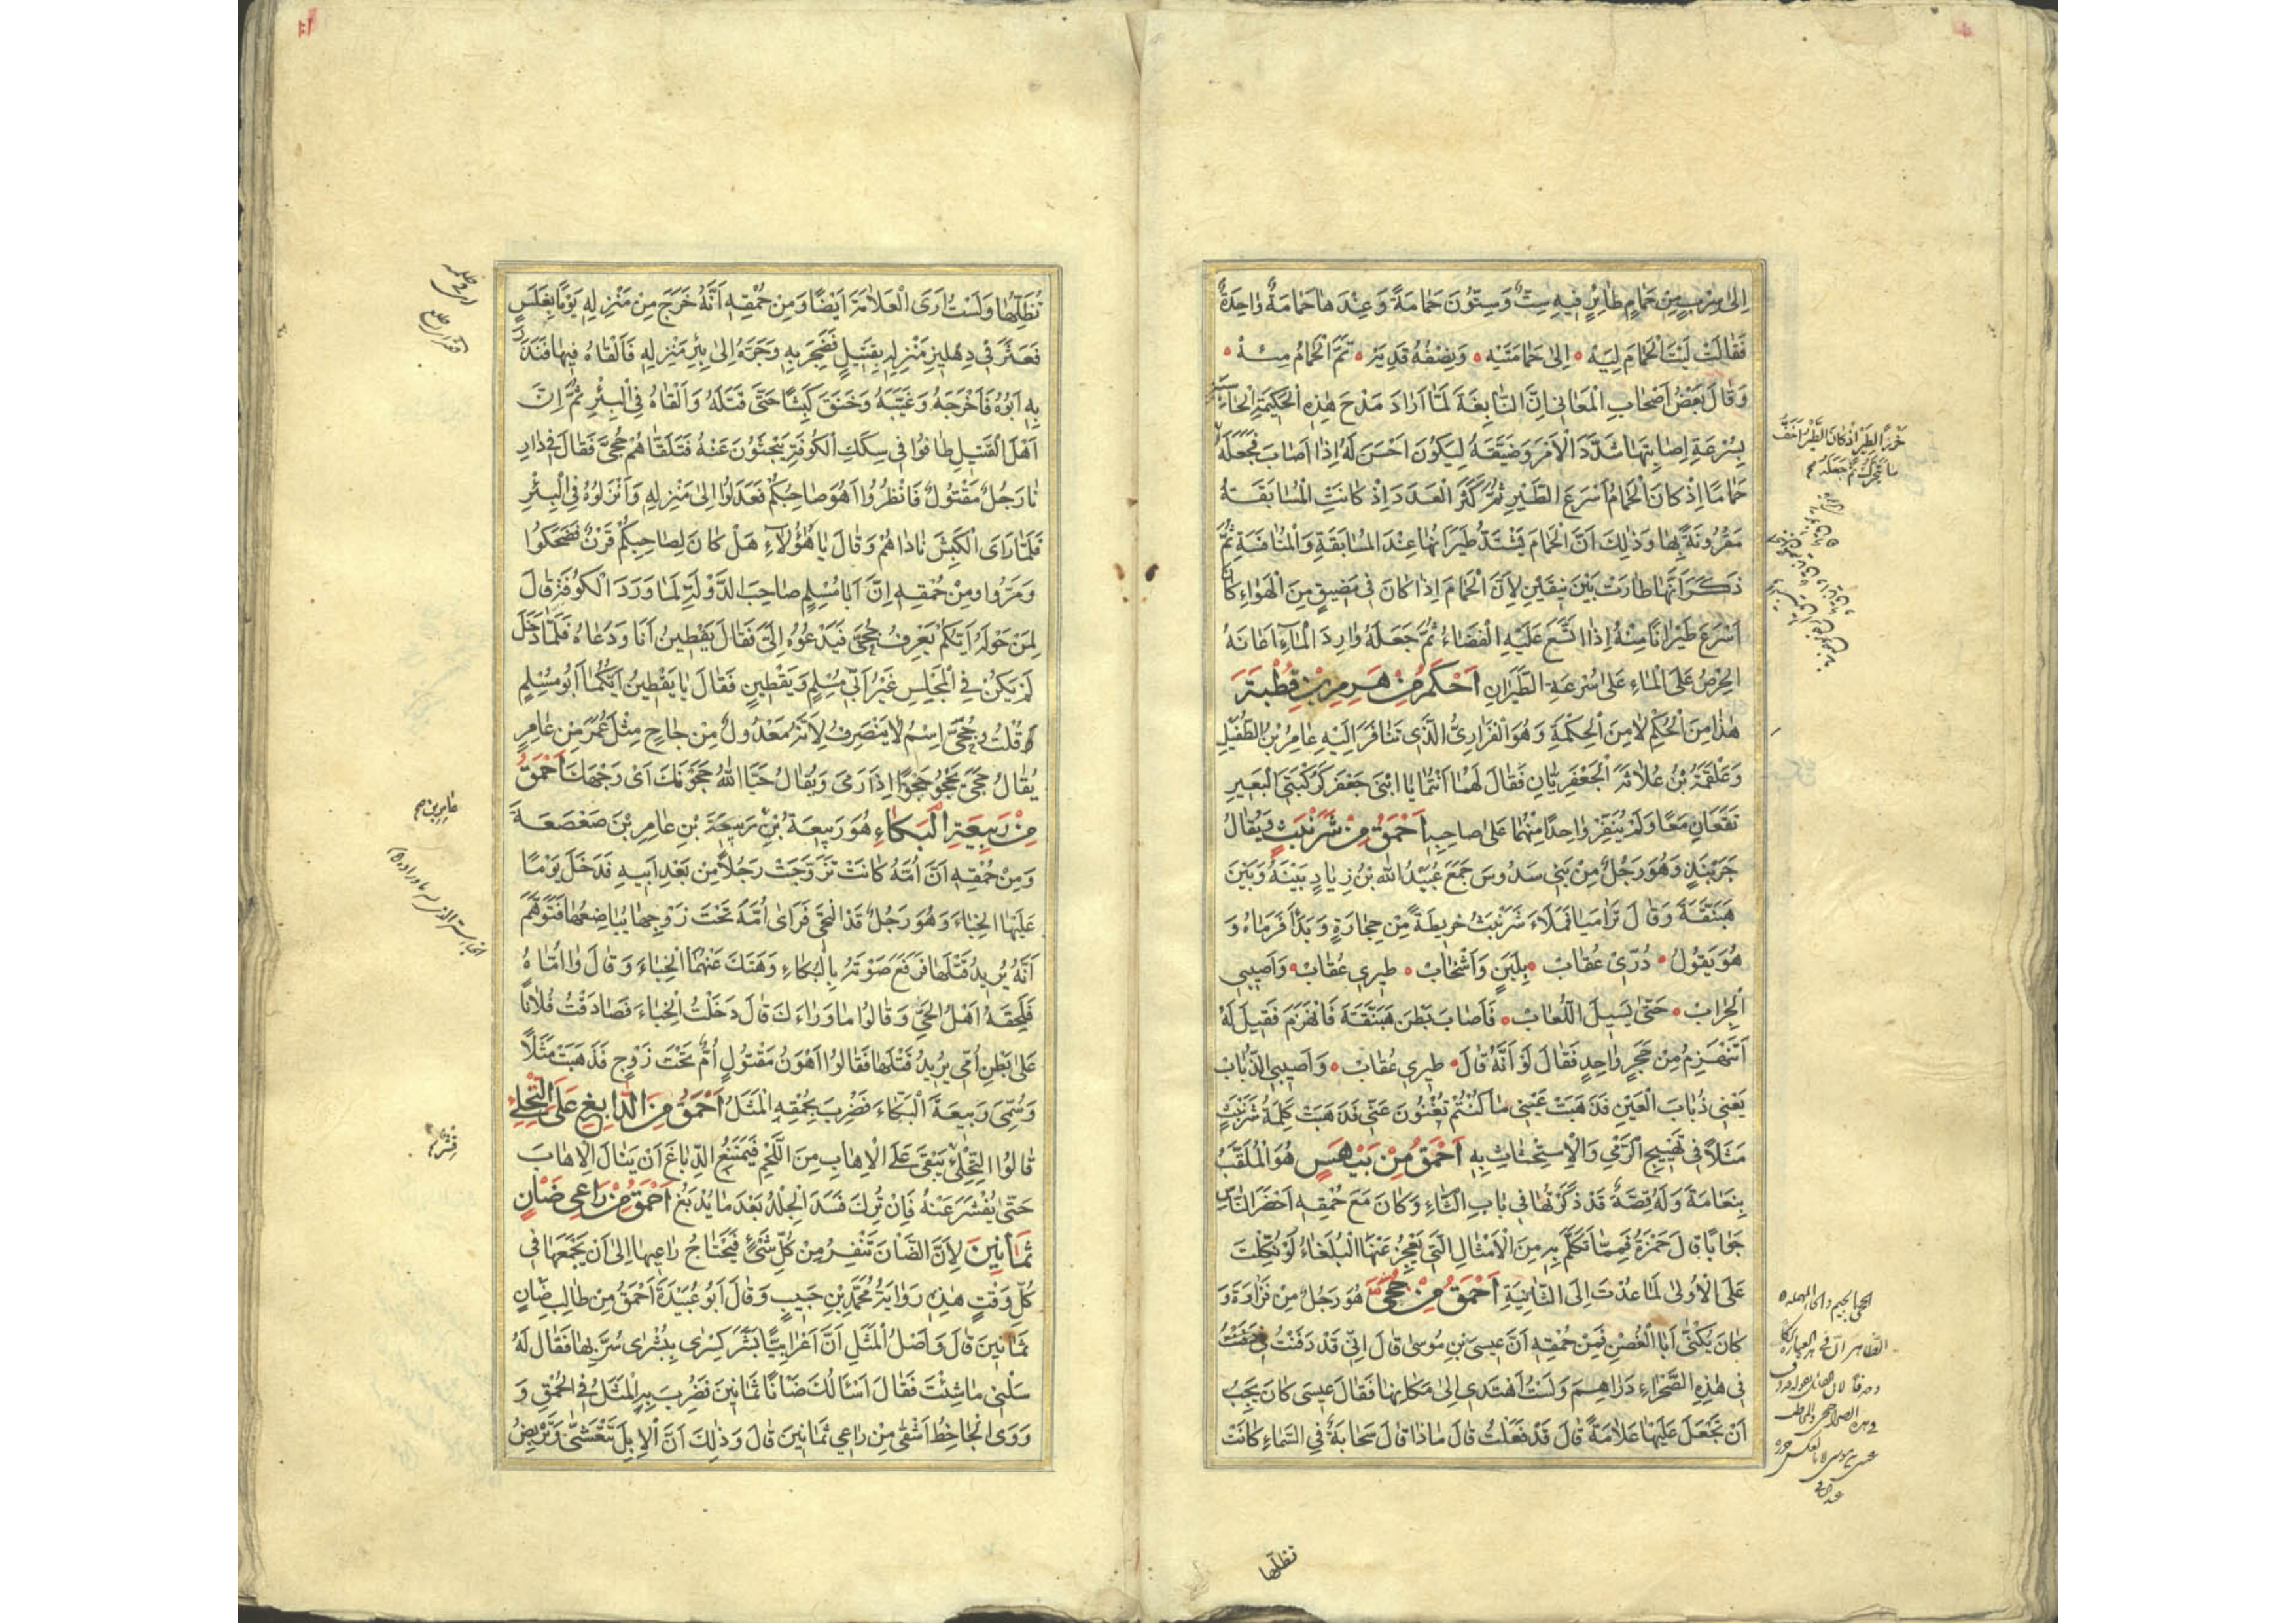 اِلىٰ سِرْبٍ مِنْ حَمَامٍ طَائِرٍ فِيهِ سِتٌّ وَسِتُّونَ حَمَامَةً وَعِنْدَهَا حَمَامَةٌ وَاحِدَةٌ
فَقَالَتْ لَيْتَ الْحَمَامَ لِيَهْ ۰ اِلىٰ حَمَامَتِيَهْ ۰ وَنِصْفُهُ قَدِيَهْ ۰ تَمَّ الْحَمَامُ مِئَهْ ۰
وَقَالَ بَعْضُ اَصْحَابِ الْمَعَانِي اِنَّ النَّابِغَةَ لَمَّا اَرَادَ مَدْحَ هٰذِهِ الْحَكِيمَةِ الْحَاسِبَةِ
بِسُرْعَةِ اِصَابَتِهَا شَدَّدَ الْاَمْرَ وَضَيَّقَهُ لِيَكُونَ اَحْسَنَ لَهُ اِذَا اَصَابَ فَجَعَلَهُ
حَمَامًا اِذْ كَانَ الْحَمَامُ اَسْرَعَ الطَّيْرِ ثُمَّ كَثَّرَ الْعَدَدَ اِذْ كَانَتِ الْمُسَابَقَةُ
مَقْرُونَةً بِهَا وَذٰلِكَ اَنَّ الْحَمَامَ يَشْتَدُّ طَيَرَانُهَا عِنْدَ الْمُسَابَقَةِ وَالْمُنَافَسَةِ ثُمَّ
ذَكَرَ اَنَّهَا طَارَتْ بَيْنَ نِيقَيْنِ لِاَنَّ الْحَمَامَ اِذَا كَانَ فِي مَضِيقٍ مِنَ الْهَوَاءِ كَانَ
اَسْرَعَ طَيَرَانًا مِنْهُ اِذَا اتَّسَعَ عَلَيْهِ الْفَضَاءُ ثُمَّ جَعَلَهُ وَارِدَ الْمَاءِ اَعَانَهُ
الْحِرْصُ عَلَى الْمَاءِ عَلىٰ سُرْعَةِ الطَّيَرَانِ اَحْكَمُ مِنْ هَرِمِ بْنِ قُطْبَةَ
هٰذَا مِنَ الْحُكْمِ لَا مِنَ الْحِكْمَةِ وَهُوَ الْفَزَارِيُّ الَّذِي تَنَافَرَ اِلَيْهِ عَامِرُ بْنُ الطُّفَيْلِ
وَعَلْقَمَةُ بْنُ عُلَاثَةَ الْجَعْفَرِيَّانِ فَقَالَ لَهُمَا اَنْتُمَا يَا ابْنَيْ جَعْفَرٍ كَرُكْبَتَيِ الْبَعِيرِ
تَقَعَانِ مَعًا وَلَمْ يُنَفِّرْ وَاحِدًا مِنْهُمَا عَلىٰ صَاحِبِهِ اَحْمَقُ مِنْ شَرَنْبَثٍ وَيُقَالُ
جَرَنْبَذٍ وَهُوَ رَجُلٌ مِنْ بَنِي سَدُوسٍ جَمَعَ عُبَيْدُ اللّٰهِ بْنُ زِيَادٍ بَيْنَهُ وَبَيْنَ
هَبَنَّقَةَ وَقَالَ تَرَامَيَا فَمَلَأَ شَرَنْبَثُ خَرِيطَةً مِنْ حِجَارَةٍ وَبَدَأَ فَرَمَاهُ وَ
هُوَ يَقُولُ ۰ دُرِّي عُقَابْ ۰ بِلَبَنٍ وَاَشْخَابْ ۰ طِيرِي عُقَابْ ۰ وَاَصِيبِي
الْجِرَابْ ۰ حَتّىٰ يَسِيلَ اللُّعَابْ ۰ فَاَصَابَ بَطْنَ هَبَنَّقَةَ فَانْهَزَمَ فَقِيلَ لَهُ
اَتَنْهَزِمُ مِنْ حَجَرٍ وَاحِدٍ فَقَالَ لَوْ اَنَّهُ قَالَ ۰ طِيرِي عُقَابْ ۰ وَاَصِيبِي الذُّبَابْ
يَعْنِي ذُبَابَ الْعَيْنِ فَذَهَبَتْ عَيْنِي مَا كُنْتُمْ تُغْنُونَ عَنِّي فَذَهَبَتْ كَلِمَةُ شَرَنْبَثٍ
مَثَلًا فِي تَهْيِيجِ الرَّمْيِ وَالْاِسْتِحْثَاثِ بِهِ اَحْمَقُ مِنْ بَيْهَسٍ هُوَ الْمُلَقَّبُ
بِنَعَامَةَ وَلَهُ قِصَّةٌ قَدْ ذَكَرْتُهَا فِي بَابِ الثَّاءِ وَكَانَ مَعَ حُمْقِهِ اَحْضَرَ النَّاسِ
جَوَابًا قَالَ حَمْزَةُ فَمِمَّا تَكَلَّمَ بِهِ مِنَ الْاَمْثَالِ الَّتِي يَعْجِزُ عَنْهَا الْبُلَغَاءُ لَوْ نُكِلْتَ
عَلَى الْاُولىٰ لَمَا عُدْتَ اِلَى الثَّانِيَةِ اَحْمَقُ مِنْ جُحىٰ هُوَ رَجُلٌ مِنْ فَزَارَةَ وَ
كَانَ يُكْنىٰ اَبَا الْغُصْنِ فَمِنْ حُمْقِهِ اَنَّ عِيسَى بْنَ مُوسىٰ قَالَ اِنِّي قَدْ دَفَنْتُ
فِي هٰذِهِ الصَّحْرَاءِ دَرَاهِمَ وَلَسْتُ اَهْتَدِي اِلىٰ مَكَانِهَا فَقَالَ عِيسىٰ كَانَ يَجِبُ
اَنْ تَجْعَلَ عَلَيْهَا عَلَامَةً قَالَ قَدْ فَعَلْتُ قَالَ مَاذَا قَالَ سَحَابَةٌ فِي السَّمَاءِ كَانَتْ
تظلّها
تُظِلُّهَا وَلَسْتُ اَرَى الْعَلَامَةَ اَيْضًا وَمِنْ حُمْقِهِ اَنَّهُ خَرَجَ مِنْ مَنْزِلِهِ يَوْمًا بِغَلَسٍ
فَعَثَرَ فِي دِهْلِيزِ مَنْزِلِهِ بِقَتِيلٍ فَضَجِرَ بِهِ وَجَرَّهُ اِلىٰ بِئْرِ مَنْزِلِهِ فَاَلْقَاهُ فِيهَا فَنَذِرَ
بِهِ اَبُوهُ فَاَخْرَجَهُ وَغَيَّبَهُ وَخَنَقَ كَبْشًا حَتّىٰ قَتَلَهُ وَاَلْقَاهُ فِي الْبِئْرِ ثُمَّ اِنَّ
اَهْلَ الْقَتِيلِ طَافُوا فِي سِكَكِ الْكُوفَةِ يَبْحَثُونَ عَنْهُ فَتَلَقَّاهُمْ جُحىٰ فَقَالَ فِي دَارِ
نَا رَجُلٌ مَقْتُولٌ فَانْظُرُوا اَهُوَ صَاحِبُكُمْ فَعَدَلُوا اِلىٰ مَنْزِلِهِ وَاَنْزَلُوهُ فِي الْبِئْرِ
فَلَمَّا رَاَى الْكَبْشَ نَادَاهُمْ وَقَالَ يَا هٰؤُلَاءِ هَلْ كَانَ لِصَاحِبِكُمْ قَرْنٌ فَضَحِكُوا
وَمَرُّوا وَمِنْ حُمْقِهِ اِنَّ اَبَا مُسْلِمٍ صَاحِبَ الدَّوْلَةِ لَمَّا وَرَدَ الْكُوفَةَ قَالَ
لِمَنْ حَوْلَهُ اَيُّكُمْ يَعْرِفُ جُحىٰ فَيَدْعُوهُ اِلَيَّ فَقَالَ يَقْطِينُ اَنَا وَدَعَاهُ فَلَمَّا دَخَلَ
لَمْ يَكُنْ فِي الْمَجْلِسِ غَيْرُ اَبِي مُسْلِمٍ وَيَقْطِينٍ فَقَالَ يَا يَقْطِينُ اَيُّكُمَا اَبُو مُسْلِمٍ
قُلْتُ وَجُحىٰ اِسْمٌ لَا يَنْصَرِفُ لِاَنَّهُ مَعْدُولٌ مِنْ جَاحٍ مِثْلُ عُمَرَ مِنْ عَامِرٍ
يُقَالُ جَحىٰ يَجْحُو جَحْوًا اِذَا رَمىٰ وَيُقَالُ حَيَّا اللّٰهُ جَحْوَتَكَ اَيْ وَجْهَكَ اَحْمَقُ
مِنْ رَبِيعَةِ الْبَكَّاءِ هُوَ رَبِيعَةُ بْنُ رَبِيعَةَ بْنِ عَامِرِ بْنِ صَعْصَعَةَ
وَمِنْ حُمْقِهِ اَنَّ اُمَّهُ كَانَتْ تَزَوَّجَتْ رَجُلًا مِنْ بَعْدِ اَبِيهِ فَدَخَلَ يَوْمًا
عَلَيْهَا الْخِبَاءَ وَهُوَ رَجُلٌ قَدِ الْتَحىٰ فَرَاىٰ اُمَّهُ تَحْتَ زَوْجِهَا يُبَاضِعُهَا فَتَوَهَّمَ
اَنَّهُ يُرِيدُ قَتْلَهَا فَرَفَعَ صَوْتَهُ بِالْبُكَاءِ وَهَتَكَ عَنْهُمَا الْخِبَاءَ وَقَالَ وَا اُمَّاهُ
فَلَحِقَهُ اَهْلُ الْحَيِّ وَقَالُوا مَا وَرَاءَكَ قَالَ دَخَلْتُ الْخِبَاءَ فَصَادَفْتُ فُلَانًا
عَلىٰ بَطْنِ اُمِّي يُرِيدُ قَتْلَهَا فَقَالُوا اَهْوَنُ مَقْتُولٍ اُمٌّ تَحْتَ زَوْجٍ فَذَهَبَتْ مَثَلًا
وَسُمِّيَ رَبِيعَةَ الْبَكَّاءَ فَضُرِبَ بِحُمْقِهِ الْمَثَلُ اَحْمَقُ مِنَ الدَّابِغِ عَلَى التِّحْلِئِ
قَالُوا التِّحْلِئُ يَبْقىٰ عَلَى الْاِهَابِ مِنَ اللَّحْمِ فَيَمْنَعُ الدِّبَاغَ اَنْ يَنَالَ الْاِهَابَ
حَتّىٰ يُقْشَرَ عَنْهُ فَاِنْ تُرِكَ فَسَدَ الْجِلْدُ بَعْدَ مَا يُدْبَغُ اَحْمَقُ مِنْ رَاعِي ضَأْنٍ
ثَمَانِينَ لِاَنَّ الضَّأْنَ تَنْفِرُ مِنْ كُلِّ شَيْءٍ فَيَحْتَاجُ رَاعِيهَا اِلىٰ اَنْ يَجْمَعَهَا فِي
كُلِّ وَقْتٍ هٰذِهِ رِوَايَةُ مُحَمَّدِ بْنِ حَبِيبٍ وَقَالَ اَبُو عُبَيْدَةَ اَحْمَقُ مِنْ طَالِبِ ضَأْنٍ
ثَمَانِينَ قَالَ وَاَصْلُ الْمَثَلِ اَنَّ اَعْرَابِيًّا بَشَّرَ كِسْرىٰ بِبُشْرىٰ سُرَّ بِهَا فَقَالَ لَهُ
سَلْنِي مَا شِئْتَ فَقَالَ اَسْئَلُكَ ضَأْنًا ثَمَانِينَ فَضُرِبَ بِهِ الْمَثَلُ فِي الْحُمْقِ وَ
رَوَى الْجَاحِظُ اَشْقىٰ مِنْ رَاعِي ثَمَانِينَ قَالَ وَذٰلِكَ اَنَّ الْاِبِلَ تَتَعَشّىٰ وَتَرْبِضُ